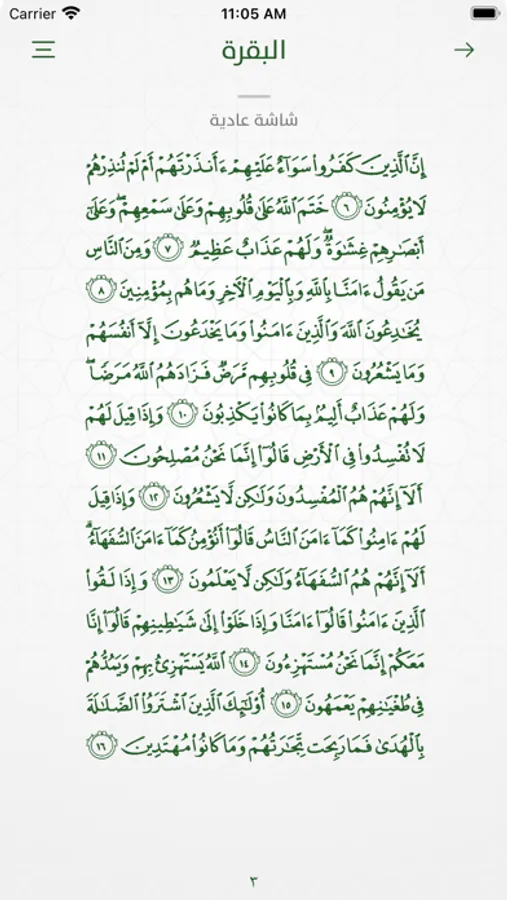 Carrier 11:05 AM
البقرة
شاشة عادية
إِنَّ ٱلَّذِينَ كَفَرُوا۟ سَوَآءٌ عَلَيْهِمْ ءَأَنذَرْتَهُمْ أَمْ لَمْ تُنذِرْهُمْ
لَا يُؤْمِنُونَ ٦ خَتَمَ ٱللَّهُ عَلَىٰ قُلُوبِهِمْ وَعَلَىٰ سَمْعِهِمْ ۖ وَعَلَىٰٓ
أَبْصَـٰرِهِمْ غِشَـٰوَةٌ ۖ وَلَهُمْ عَذَابٌ عَظِيمٌ ٧ وَمِنَ ٱلنَّاسِ
مَن يَقُولُ ءَامَنَّا بِٱللَّهِ وَبِٱلْيَوْمِ ٱلْـَٔاخِرِ وَمَا هُم بِمُؤْمِنِينَ ٨
يُخَـٰدِعُونَ ٱللَّهَ وَٱلَّذِينَ ءَامَنُوا۟ وَمَا يَخْدَعُونَ إِلَّآ أَنفُسَهُمْ
وَمَا يَشْعُرُونَ ٩ فِى قُلُوبِهِم مَّرَضٌ فَزَادَهُمُ ٱللَّهُ مَرَضًا ۖ
وَلَهُمْ عَذَابٌ أَلِيمٌۢ بِمَا كَانُوا۟ يَكْذِبُونَ ١٠ وَإِذَا قِيلَ لَهُمْ
لَا تُفْسِدُوا۟ فِى ٱلْأَرْضِ قَالُوٓا۟ إِنَّمَا نَحْنُ مُصْلِحُونَ ١١
أَلَآ إِنَّهُمْ هُمُ ٱلْمُفْسِدُونَ وَلَـٰكِن لَّا يَشْعُرُونَ ١٢ وَإِذَا قِيلَ
لَهُمْ ءَامِنُوا۟ كَمَآ ءَامَنَ ٱلنَّاسُ قَالُوٓا۟ أَنُؤْمِنُ كَمَآ ءَامَنَ ٱلسُّفَهَآءُ ۗ
أَلَآ إِنَّهُمْ هُمُ ٱلسُّفَهَآءُ وَلَـٰكِن لَّا يَعْلَمُونَ ١٣ وَإِذَا لَقُوا۟
ٱلَّذِينَ ءَامَنُوا۟ قَالُوٓا۟ ءَامَنَّا وَإِذَا خَلَوْا۟ إِلَىٰ شَيَـٰطِينِهِمْ قَالُوٓا۟ إِنَّا
مَعَكُمْ إِنَّمَا نَحْنُ مُسْتَهْزِءُونَ ١٤ ٱللَّهُ يَسْتَهْزِئُ بِهِمْ وَيَمُدُّهُمْ
فِى طُغْيَـٰنِهِمْ يَعْمَهُونَ ١٥ أُو۟لَـٰٓئِكَ ٱلَّذِينَ ٱشْتَرَوُا۟ ٱلضَّلَـٰلَةَ
بِٱلْهُدَىٰ فَمَا رَبِحَت تِّجَـٰرَتُهُمْ وَمَا كَانُوا۟ مُهْتَدِينَ ١٦
٣